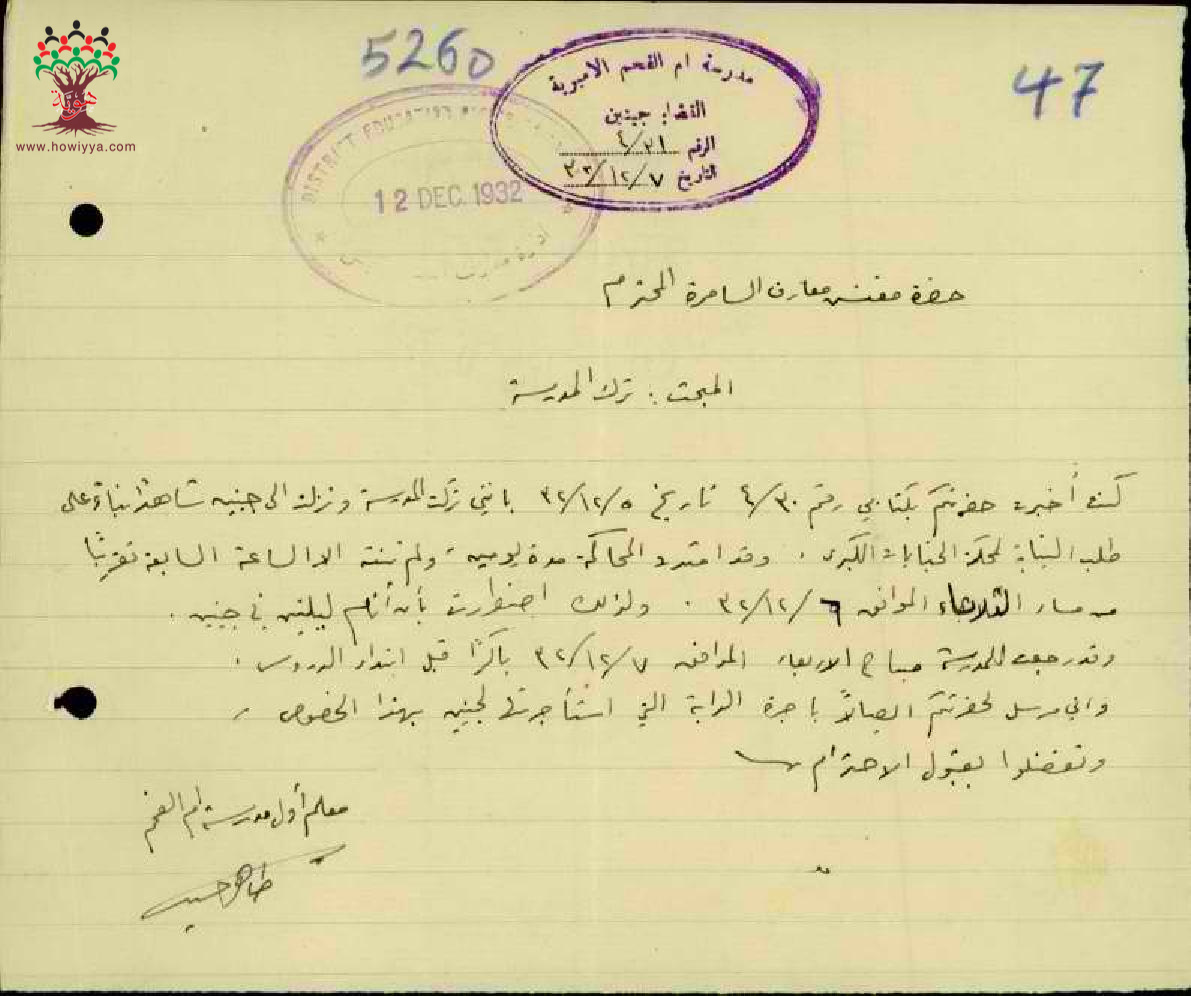 هوية
www.howiyya.com
5260
47
مدرسة ام الفحم الاميرية
القضاء جنين
الرقم ٤/٣١
التاريخ ٣٢/١٢/٧
DISTRICT EDUCATION
12 DEC. 1932
ادارة معارف
حضرة مفتش معارف السامرة المحترم
المبحث : ترك المدرسة
كنت أخبرت حضرتكم بكتابي رقم ٤/٣٠ تاريخ ٣٢/١٢/٥ بانني تركت المدرسة ونزلت الى جنين شاهدا بناء على
طلب النيابة لمحكمة الجنايات الكبرى . وقد امتدت المحاكمة مدة يومين ولم تنته الا الساعة السابعة تقريبًا
من مساء الثلاثاء الموافق ٣٢/١٢/٦ . ولذلك اضطررت بأن أنام ليلتين في جنين .
وقد رجعت للمدرسة صباح الاربعاء الموافق ٣٢/١٢/٧ باكرًا قبل ابتداء الدروس .
واني مرسل لحضرتكم ايصالاً باجرة الدابة التي استأجرتها لجنين بهذا الخصوص ،
وتفضلوا بقبول الاحترام
معلم أول مدرسة ام الفحم